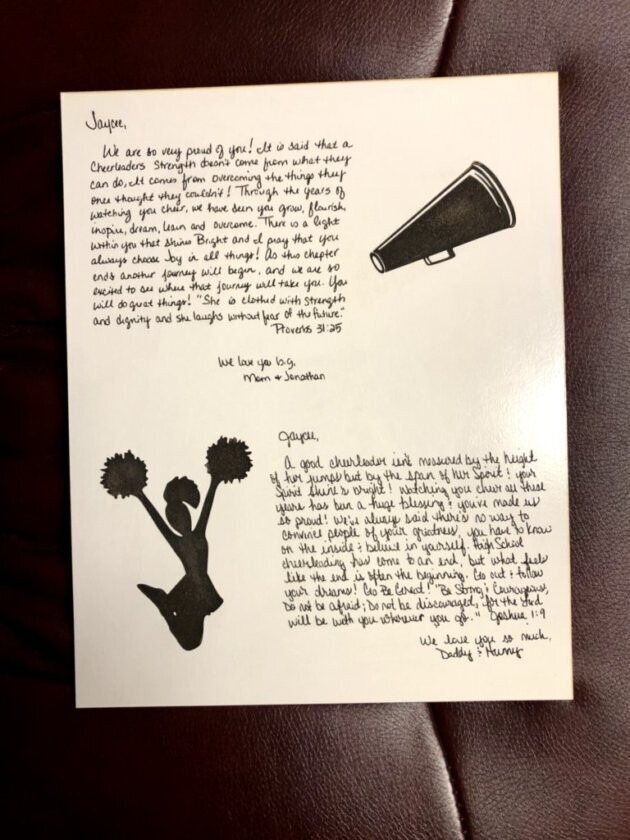 Jaycee,
We are so very proud of you! It is said that a
Cheerleaders Strength doesn't come from what they
can do, it comes from overcoming the things they
once thought they couldn't! Through the years of
watching you cheer, we have seen you grow, flourish,
inspire, dream, learn and overcome. There is a light
within you that shines Bright and I pray that you
always choose Joy in all things! As this chapter
ends another journey will begin, and we are so
excited to see where that journey will take you. You
will do great things! "She is clothed with strength
and dignity and she laughs without fear of the future."
Proverbs 31:25
We love you b.g.
Mom + Jonathan
Jaycee,
A good cheerleader isn't measured by the height
of her jumps but by the span of her Spirit! Your
Spirit shine's bright! Watching you cheer all these
years has been a huge blessing & you've made us
so proud! We've always said there's no way to
convince people of your greatness, you have to know
on the inside & believe in yourself. High School
cheerleading has come to an end, but what feels
like the end is often the beginning. Go out & follow
your dreams! Go Be Great! "Be Strong & Courageous,
Do not be afraid; Do not be discouraged, for the Lord
will be with you wherever you go." Joshua 1:9
We love you so much,
Daddy &